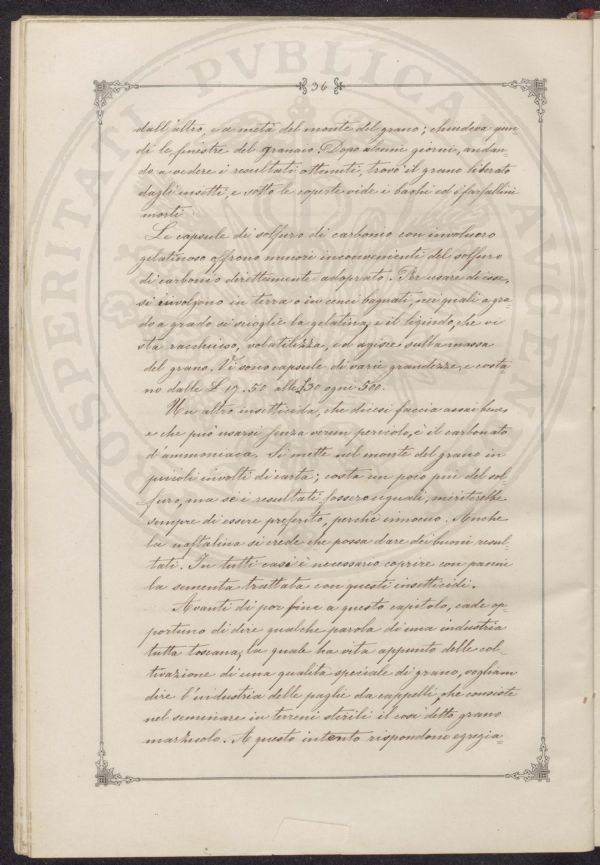 36
dall'altro, e a metà del monte del grano; chiudeva quin
di le finestre del granaio. Dopo alcuni giorni, andan-
do a vedere i resultati ottenuti, trovò il grano liberato
dagli insetti, e sotto le coperte vide i bachi ed i farfallini
morti.
Le capsule di solfuro di carbonio con involucro
gelatinoso offrono minori inconvenienti del solfuro
di carbonio direttamente adoprato. Per usare di esse,
si involgono in terra o in cenci bagnati, nei quali a gra-
do a grado si scioglie la gelatina, e il liquido, che vi
sta racchiuso, volatilizza, ed agisce sulla massa
del grano. Vi sono capsule di varie grandezze, e costa
no dalle £ 17.50 alle £30 ogni 500.
Un altro insetticida, che dicesi faccia assai bene,
e che può usarsi senza verun pericolo, è il carbonato
d'ammoniaca. Si mette nel monte del grano in
piccoli involti di carta; costa un poco più del sol-
furo, ma se i resultati fossero uguali, meriterebbe
sempre di essere preferito, perchè innocuo. Anche
la naftalina si crede che possa dare dei buoni resul-
tati. In tutti casi è necessario coprire con panni
la sementa trattata con questi insetticidi.
Avanti di por fine a questo capitolo, cade op-
portuno di dire qualche parola di una industria
tutta toscana, la quale ha vita appunto delle col-
tivazione di una qualità speciale di grano, vogliam
dire l'industria delle paglie da cappelli, che consiste
nel seminare in terreni sterili il così detto grano
marzuolo. A questo intento rispondono egregia=
PROSPERITATI PVBLICAE AVGENDAE